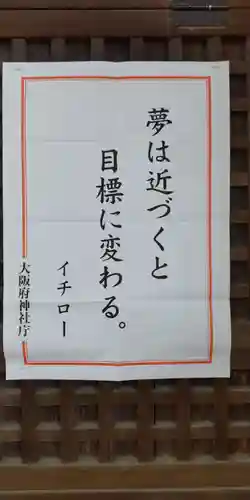 夢は近づくと
目標に変わる。
イチロー
大阪府神社庁